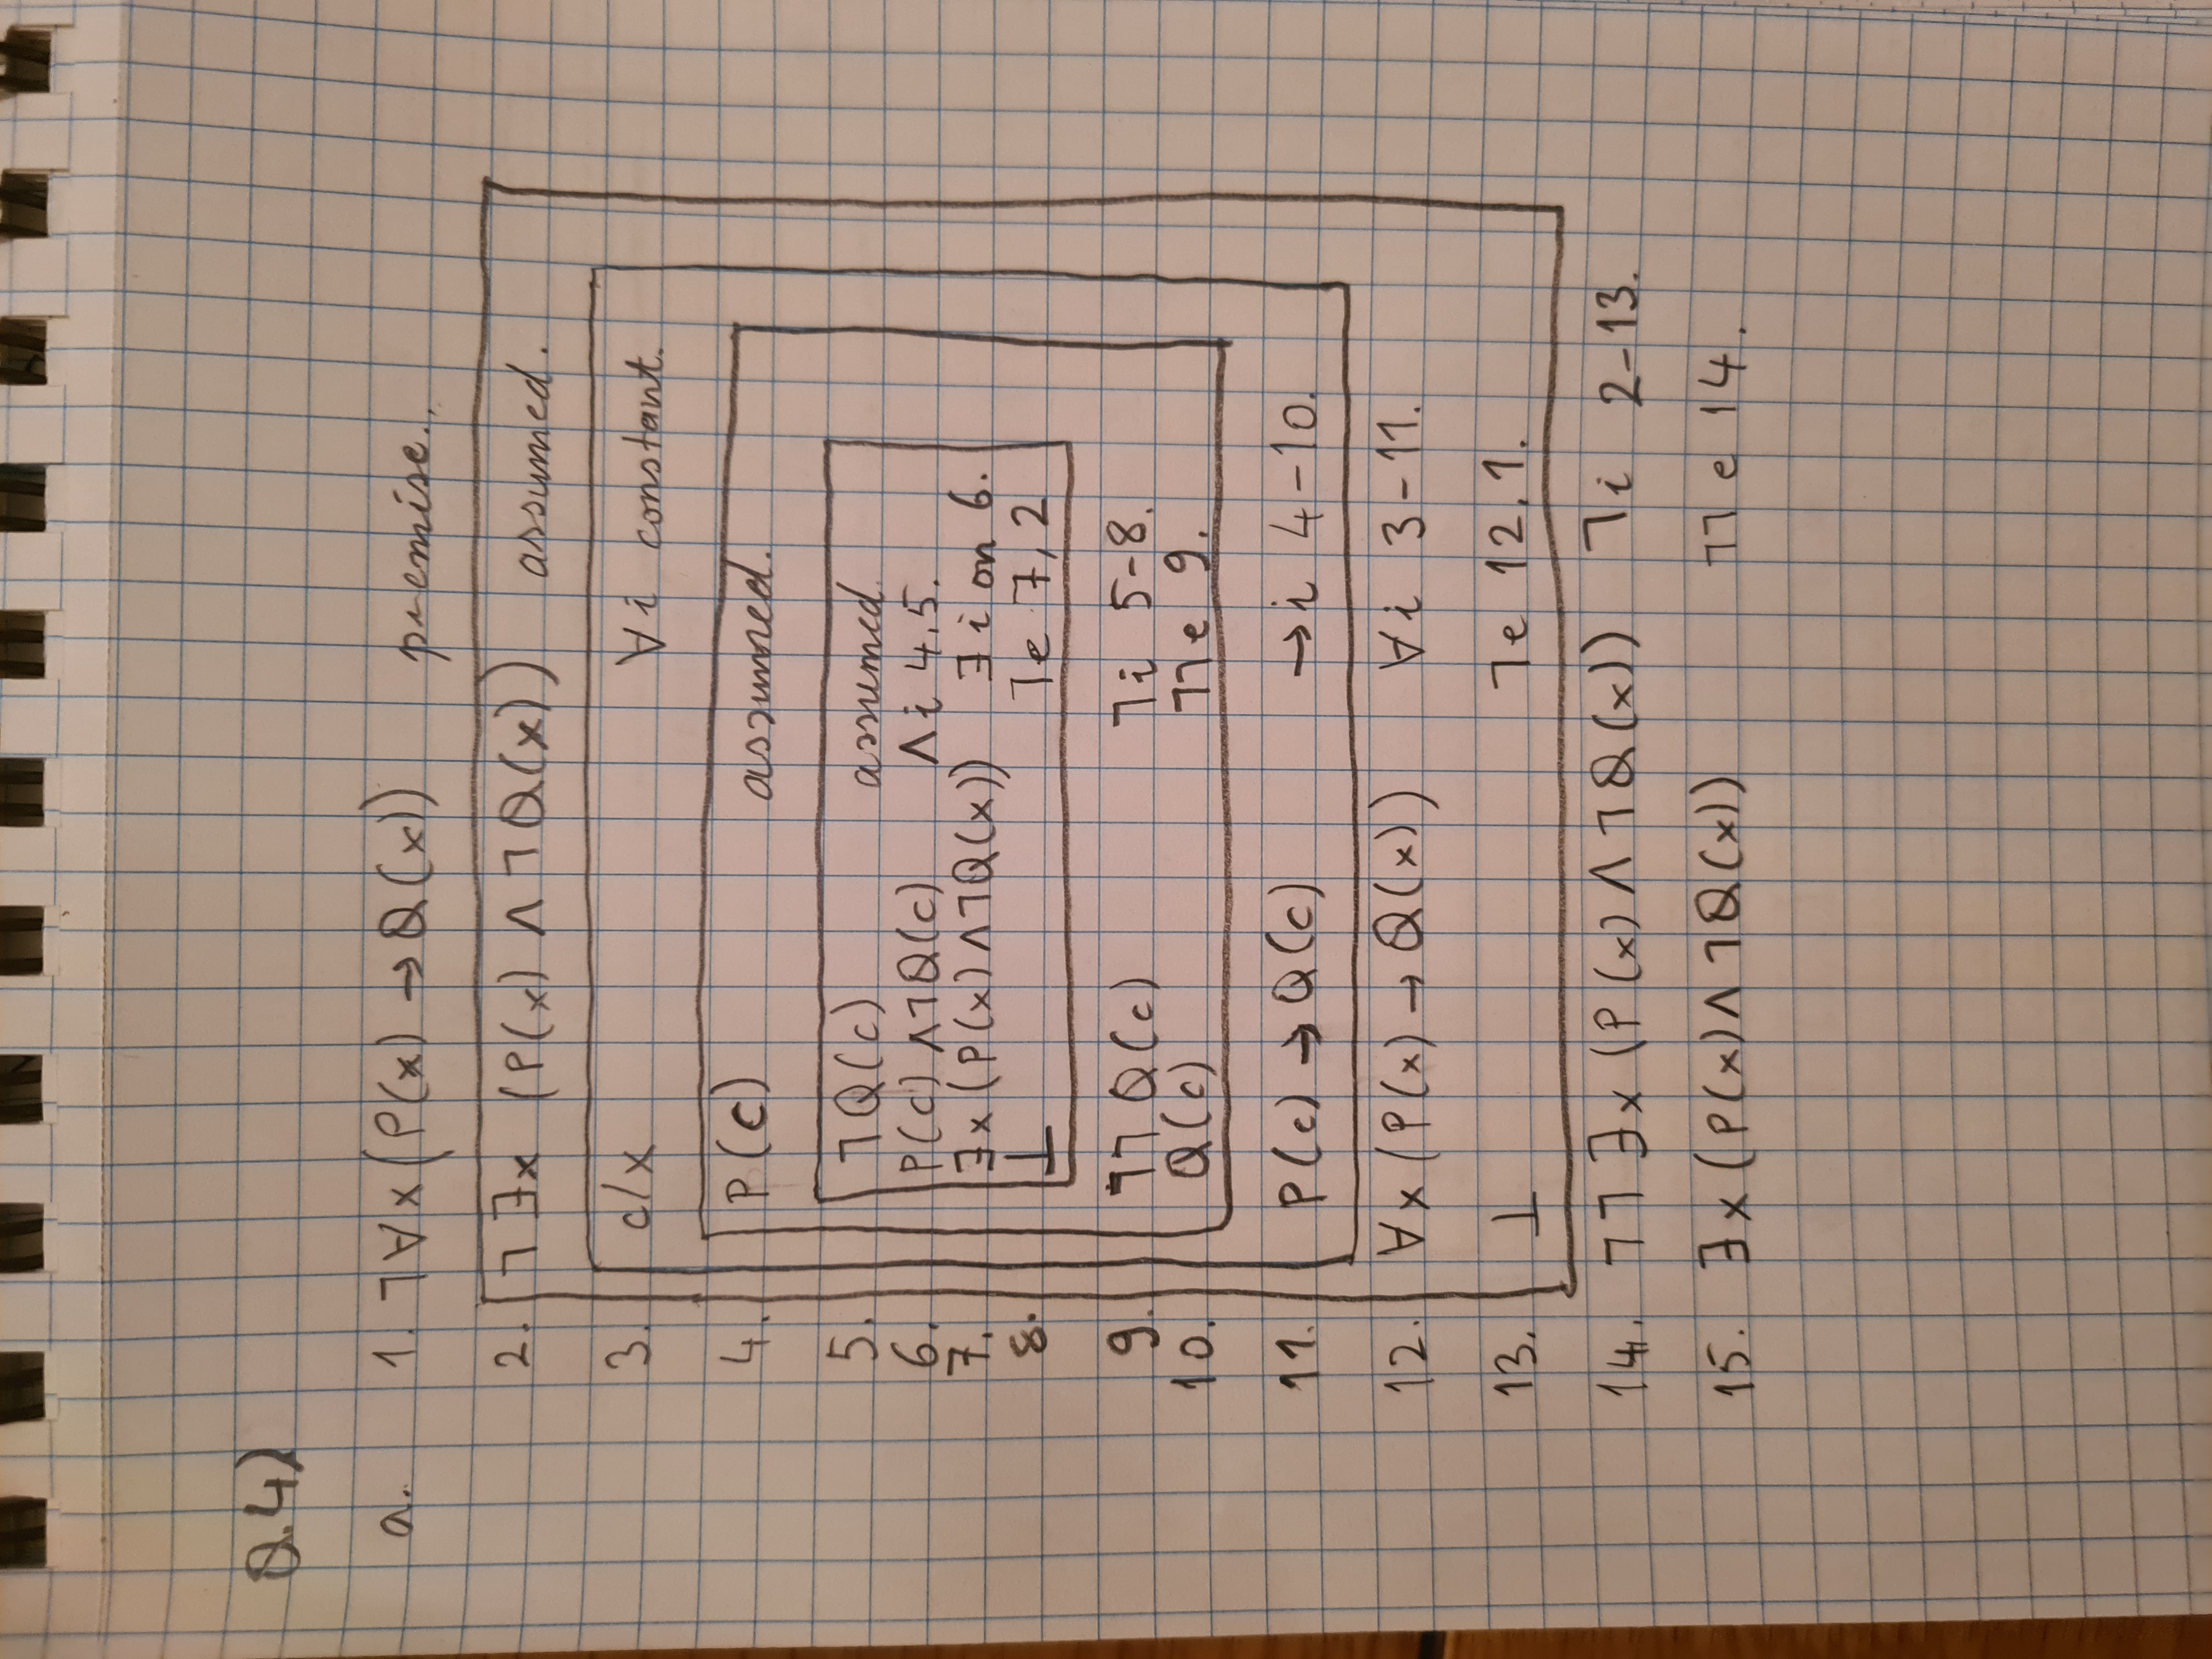 Q.4)
a. 1. ¬∀x(P(x) → Q(x)) premise.
2. ¬∃x (P(x) ∧ ¬Q(x)) assumed.
3. c/x ∀i constant.
4. P(c) assumed.
5. ¬Q(c) assumed.
6. P(c) ∧ ¬Q(c) ∧i 4,5.
7. ∃x(P(x) ∧ ¬Q(x)) ∃i on 6.
8. ⊥ ¬e 7,2
9. ¬¬Q(c) ¬i 5-8.
10. Q(c) ¬¬e 9.
11. P(c) → Q(c) →i 4-10.
12. ∀x(P(x) → Q(x)) ∀i 3-11.
13. ⊥ ¬e 12,1.
14. ¬¬∃x(P(x) ∧ ¬Q(x)) ¬i 2-13.
15. ∃x(P(x) ∧ ¬Q(x)) ¬¬e 14.